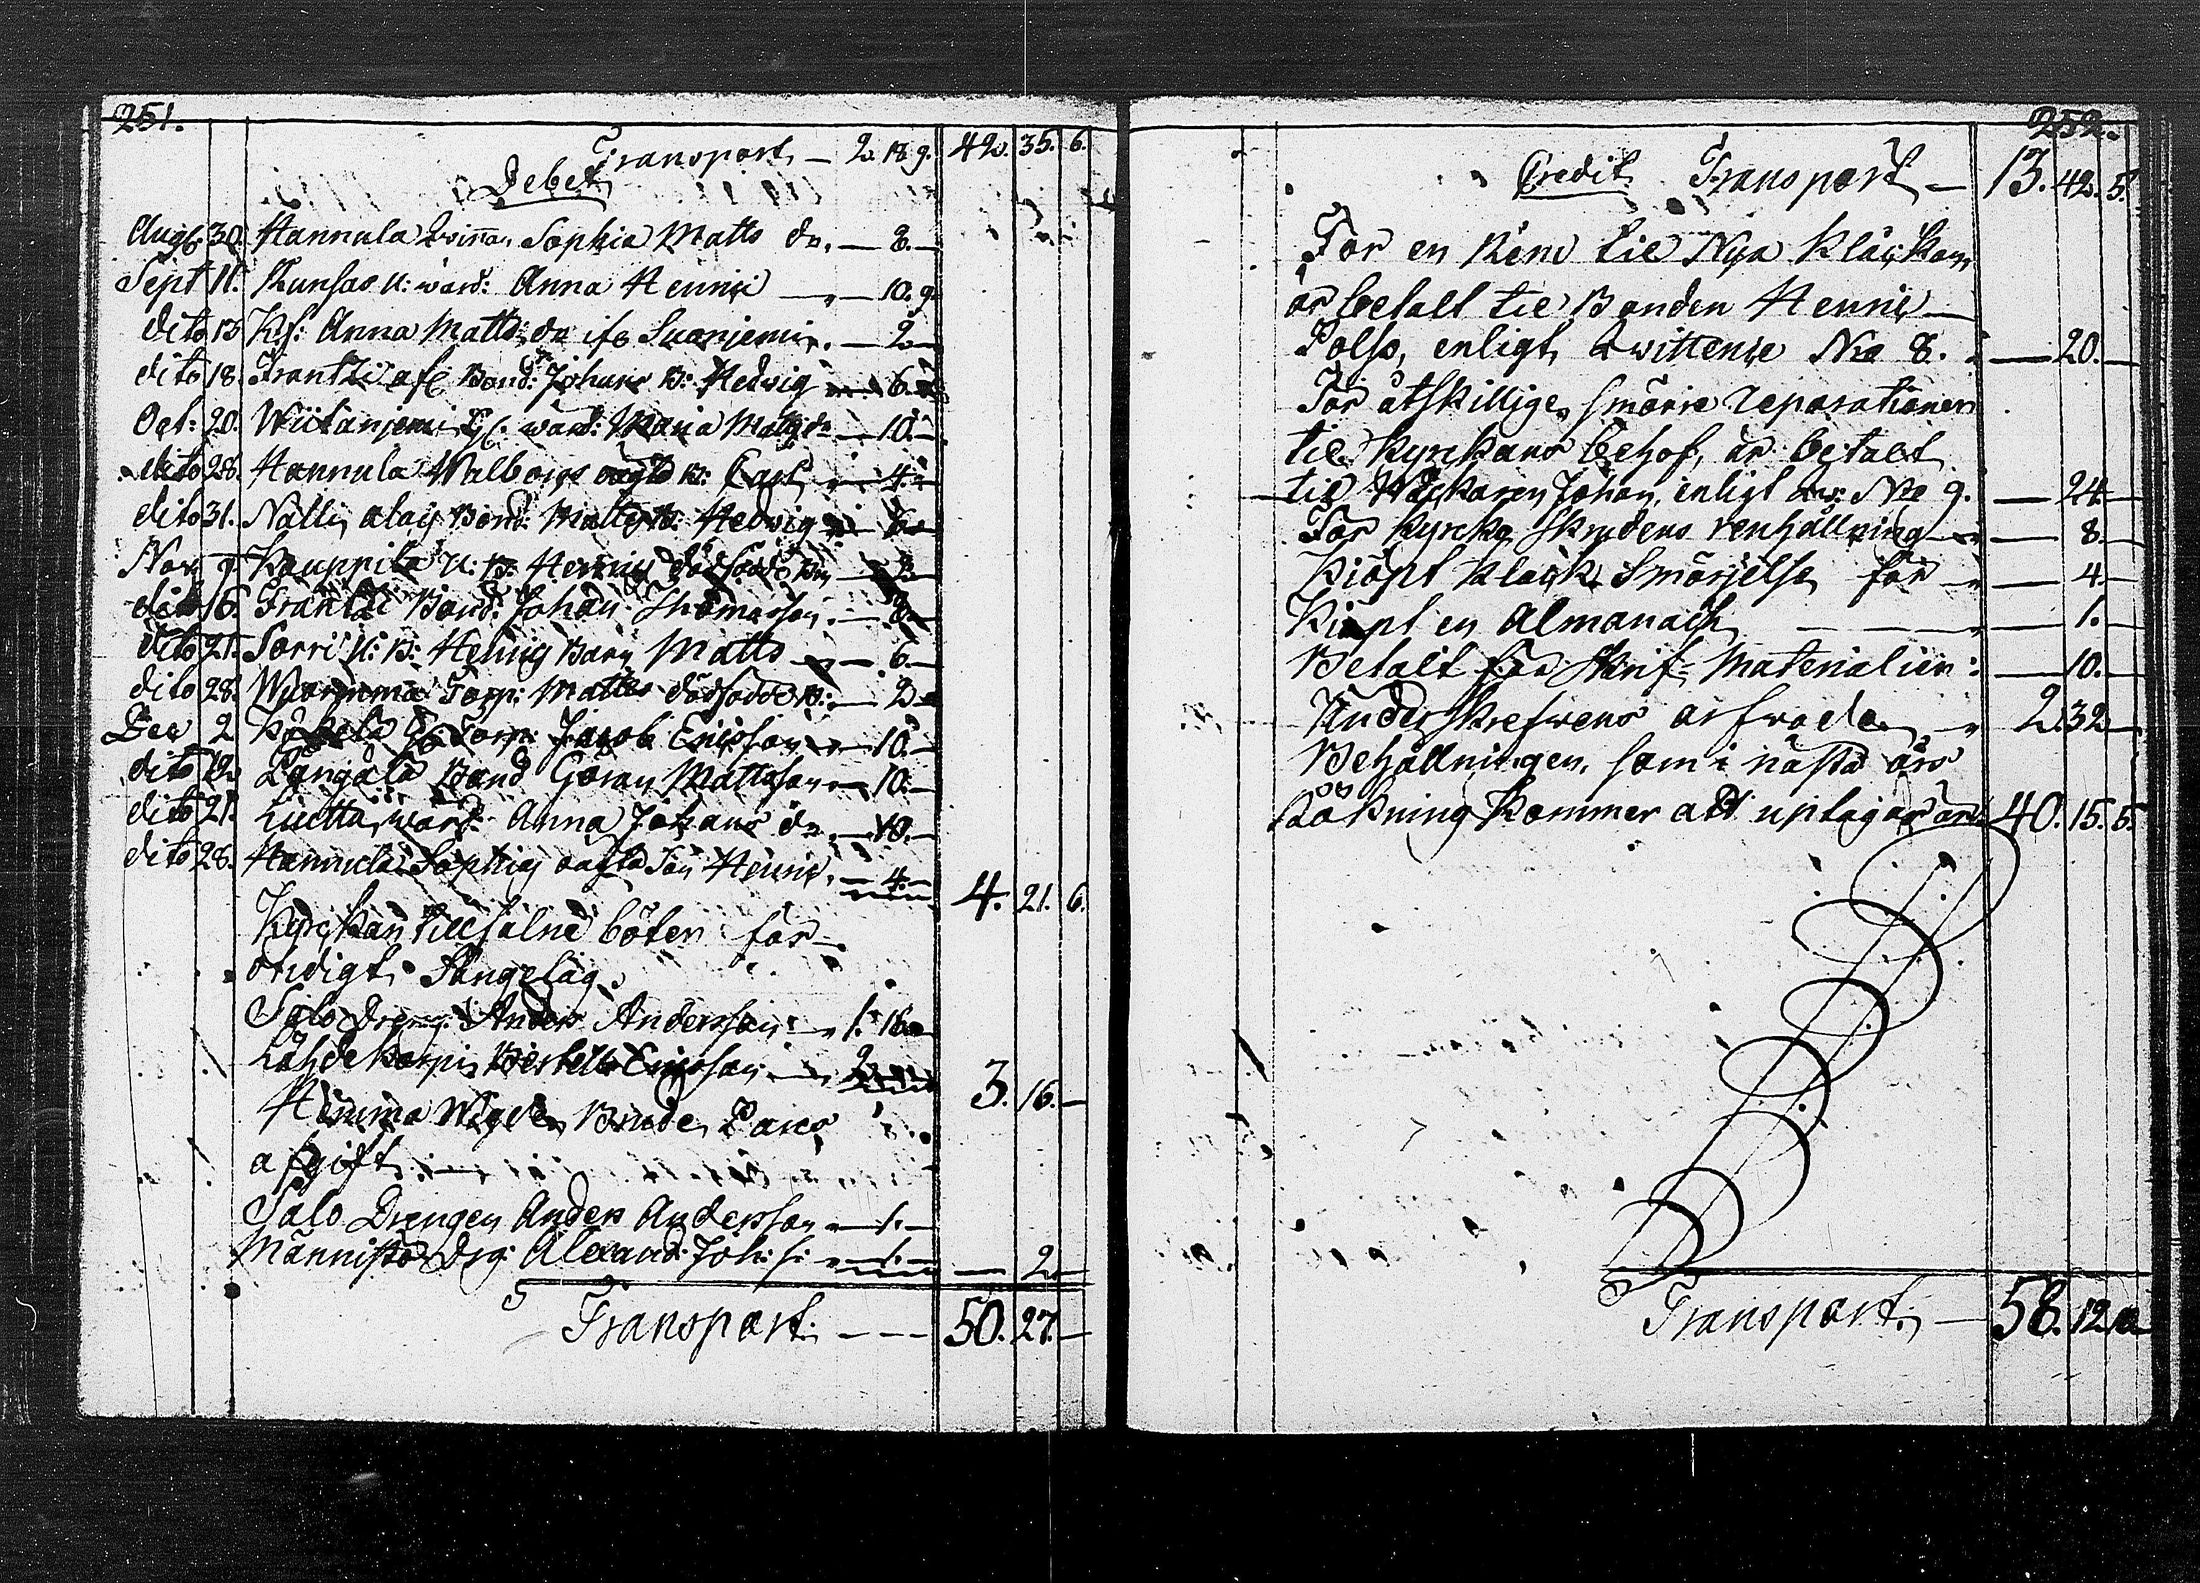 251.
Transport — 2. 18. 9. 42. 35. 6.
Debet
Aug. 30. Hannula Qvinnan Sophia Matts dr. — 2. —
Sept 11. Kunsas U: ward: Anna Henric — 10. 9.
dito 13 Anna Matts dr ifr Suoniemi. — 2 —
dito 18. Frantti afl Bond: Johans B: Hedvig — 6. —
Oct: 20. Wiitaniemi ward: Maria Matts dr — 10. —
dito 28. Hannula Walborgs oägta B: Carl — 4. —
dito 31. Nalli Bond: Matts B: Hedvig — 6 —
Nov 9 Kauppila U: B: Henrics dödfödde B: — 2 —
dito 16. Frantti Bond: Johan Thomasson. — —
dito 21. Sorri U: B: Henrics Barn Matts — 6. —
dito 28. Torp: Matts dödfödde B: — 2 —
Dec 2 Torp: Jacob Ericsson — 10. —
dito 12 Pangala Bond Göran Mattsson — 10. —
dito 21. ward: Anna Johans dr. — 10. —
dito 28. Hannula Sophias oägta Son Henric. — 4. — 4. 21. 6.
Kyrckan tillfalne böter för
otidigt Sängelag.
Salo Dreng: Anders Andersson — 1. 16 —
Lähdekorpi Bertells Ericsson — 2 — 3. 16. —
Hemma Wigde Brude Pars
afgift. —
Salo Drengen Anders Andersson — 1. —
Männistö Drg: Alexand: Joh: s: — 1. — — 2 —
Transport. — — — 50. 27. —
252.
Credit Transport — 13. 42. 5.
För en Rem til Nya Kläckan
är betalt til Bonden Henric
Polso, enligt Qwittence No 8. — 20. —
För åtskillige smärre reparationer
til Kyrckans behof, är betalt
til Wäckaren Johan, enligt No 9. — 24 —
För Kyrcko Skrudens renhållning — 8. —
Kiöpt Kläck Smörjelse för — 4. —
Kiöpt en Almanach — 1. —
Betalt för Skrif-Materialier: — 10. —
Underskrefwens arfwode — 2. 32 —
Behållningen, som i nästa års
Räkning kommer att uptagas är 40. 15. 5.
Transport. — 58. 12. 10